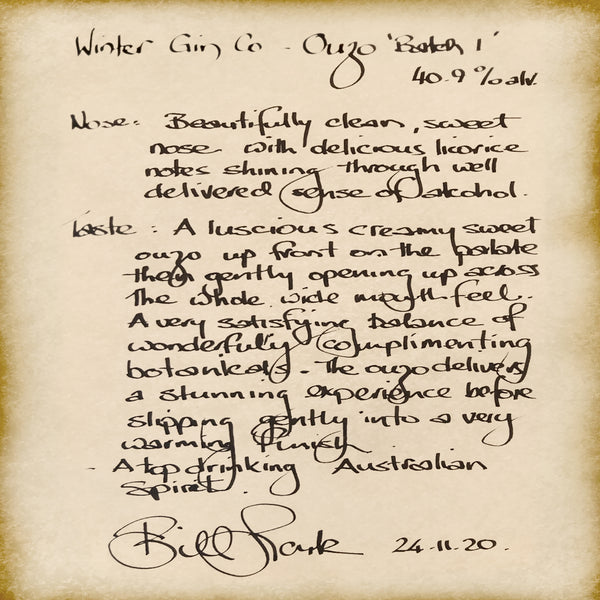 Winter Gin Co - Ouzo 'Batch 1'
40.9 % alv.
Nose: Beautifully clean, sweet
nose with delicious licorice
notes shining through well
delivered sense of alcohol.
Taste: A luscious creamy sweet
ouzo up front on the palate
then gently opening up across
the whole wide mouth feel.
A very satisfying balance of
wonderfully complimenting
botanicals. The ouzo delivers
a stunning experience before
slipping gently into a very
warming finish
- A top drinking Australian
Spirit.
Bill Lark 24.11.20.